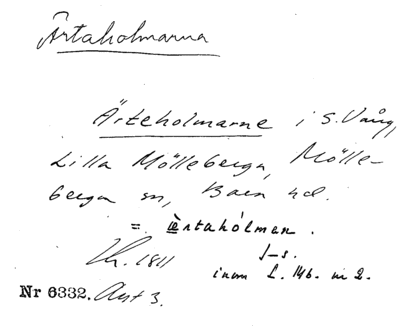 Ärtaholmarna
Ärteholmarne i S. Vång,
Lilla Mölleberga, Mölle-
berga sn, Bara hd.
= ærtahólmar.
J-s.
inom L. 146. m 2.
1811
Nr 6332. Ant 3.